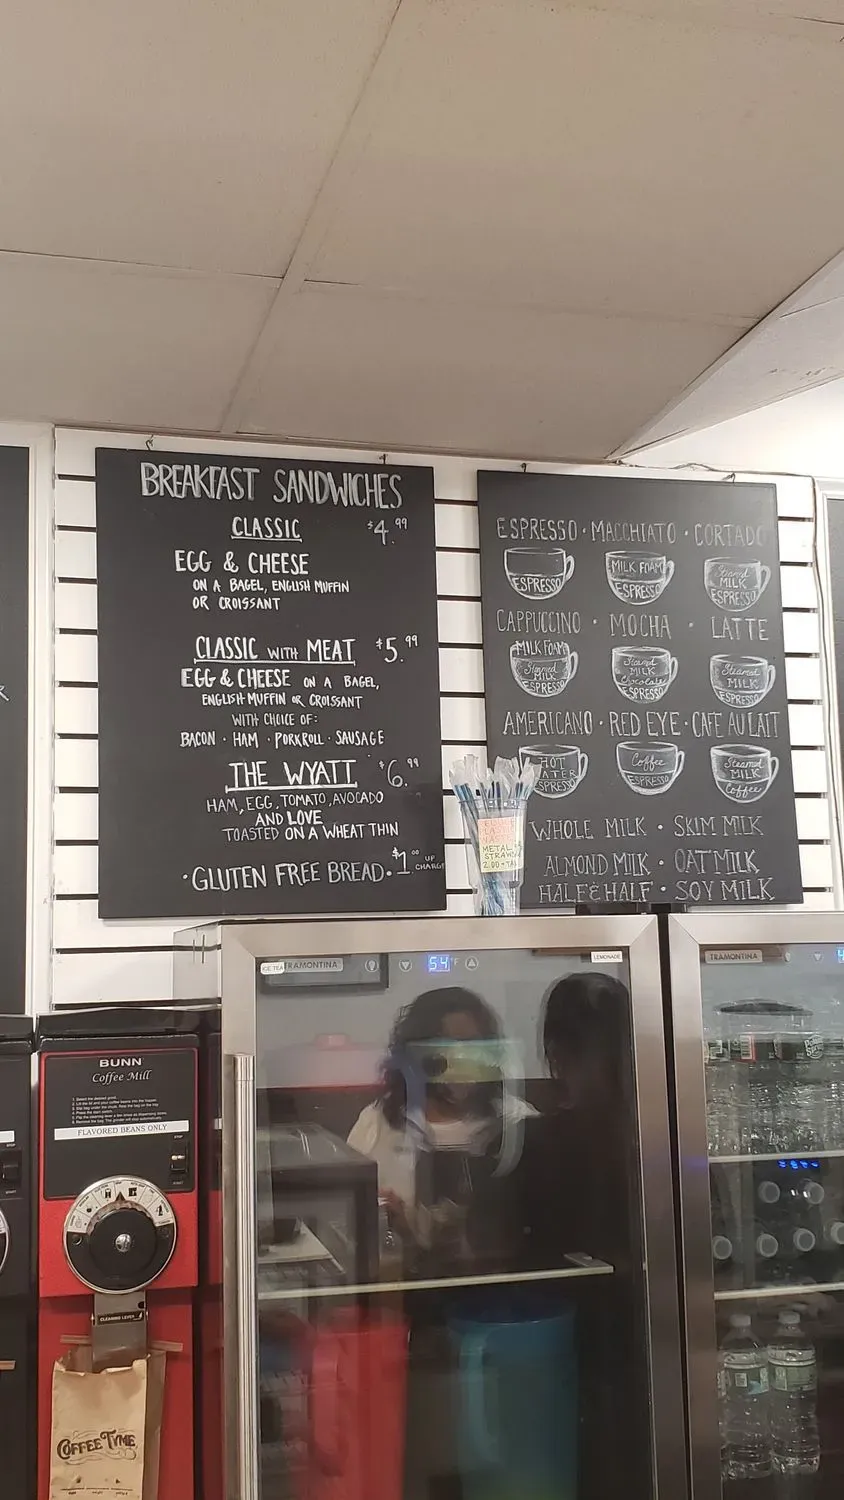 BREAKFAST SANDWICHES
CLASSIC $4.99
EGG & CHEESE
ON A BAGEL, ENGLISH MUFFIN
OR CROISSANT
CLASSIC WITH MEAT $5.99
EGG & CHEESE ON A BAGEL,
ENGLISH MUFFIN OR CROISSANT
WITH CHOICE OF:
BACON · HAM · PORKROLL · SAUSAGE
THE WYATT $6.99
HAM, EGG, TOMATO, AVOCADO
AND LOVE
TOASTED ON A WHEAT THIN
· GLUTEN FREE BREAD · $1.00 UP
CHARGE
ESPRESSO · MACCHIATO · CORTADO
ESPRESSO
MILK FOAM
ESPRESSO
Steamed
MILK
ESPRESSO
CAPPUCCINO · MOCHA · LATTE
MILK FOAM
Steamed
MILK
ESPRESSO
Steamed
MILK
Chocolate
ESPRESSO
Steamed
MILK
ESPRESSO
AMERICANO · RED EYE · CAFE AU LAIT
HOT
WATER
ESPRESSO
Coffee
ESPRESSO
Steamed
MILK
Coffee
WHOLE MILK · SKIM MILK
ALMOND MILK · OAT MILK
HALF & HALF · SOY MILK
METAL
STRAWS
2.00 + TAX
ICE TEA
TRAMONTINA
54°F
LEMONADE
TRAMONTINA
BUNN
Coffee Mill
FLAVORED BEANS ONLY
CLEANING LEVER
COFFEE TYME